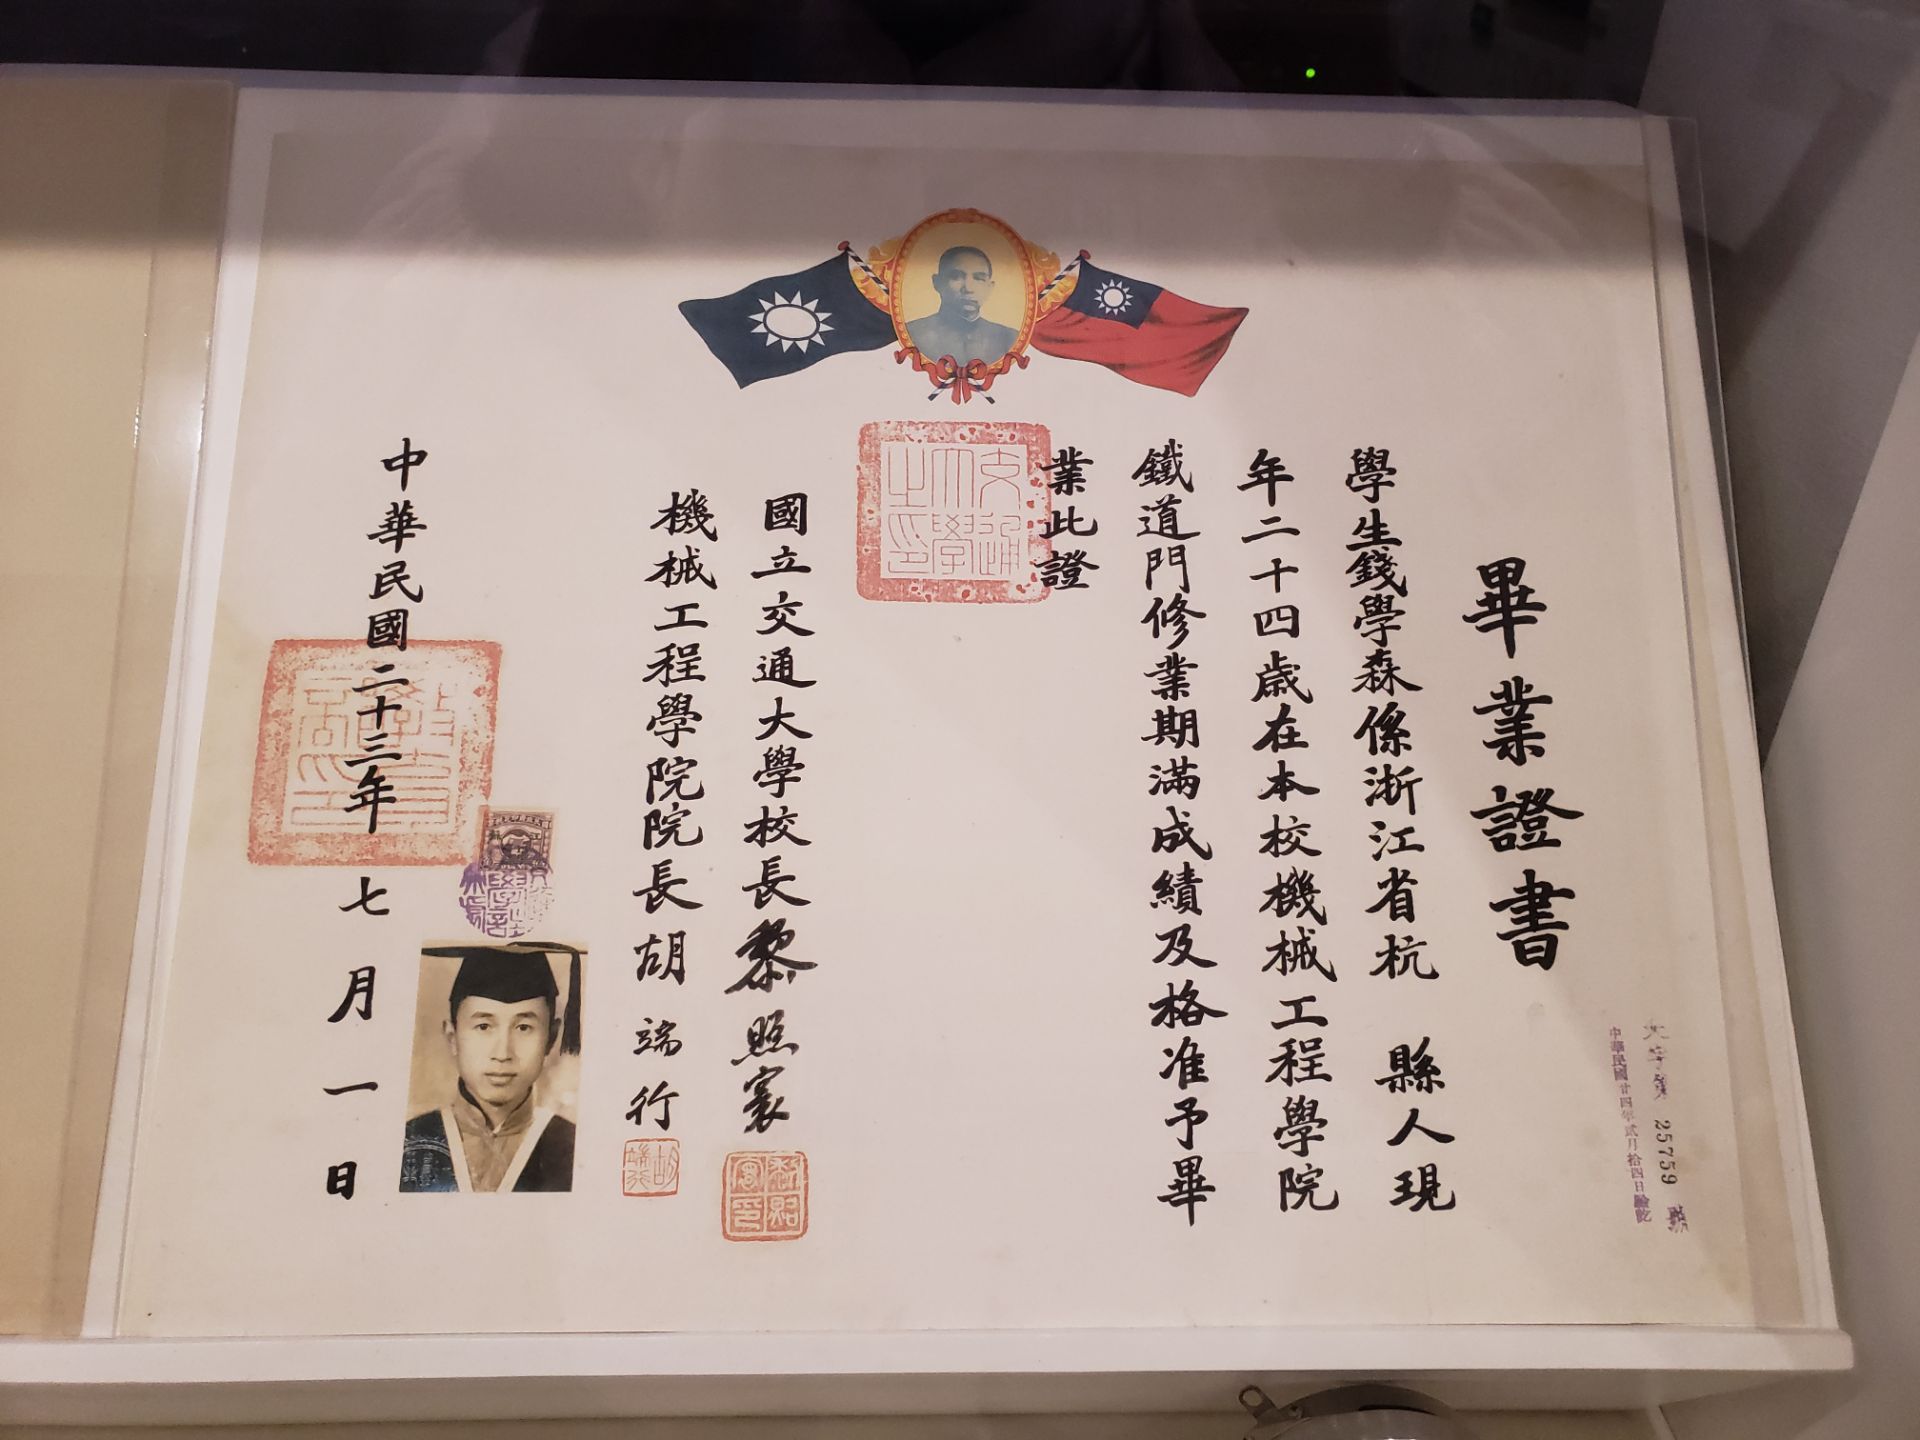 畢業證書
學生錢學森係浙江省杭 縣人現
年二十四歲在本校機械工程學院
鐵道門修業期滿成績及格准予畢
業此證
國立交通大學校長黎照寰
機械工程學院院長胡端行
中華民國二十三年七月一日
交通大學之印
黎照寰印
胡端行
大字第 25759 號
中華民國廿四年貳月拾四日驗訖